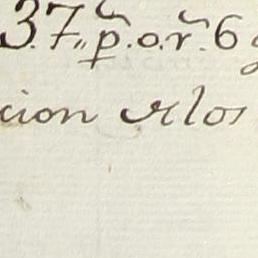 37,, p. o. r. 6
cion de los